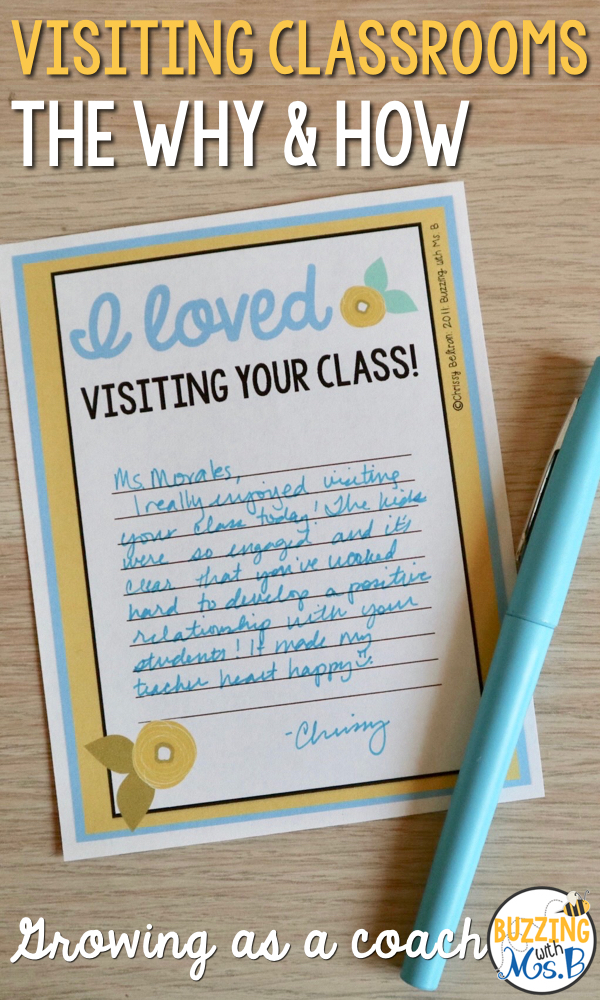 VISITING CLASSROOMS
THE WHY & HOW
©Chrissy Beltran 2011 Buzzing with Ms. B
I loved
VISITING YOUR CLASS!
Ms. Morales,
I really enjoyed visiting
your class today! The kids
were so engaged and it's
clear that you've worked
hard to develop a positive
relationship with your
students! It made my
teacher heart happy
-Chrissy
Growing as a coach
BUZZING
with
Ms. B